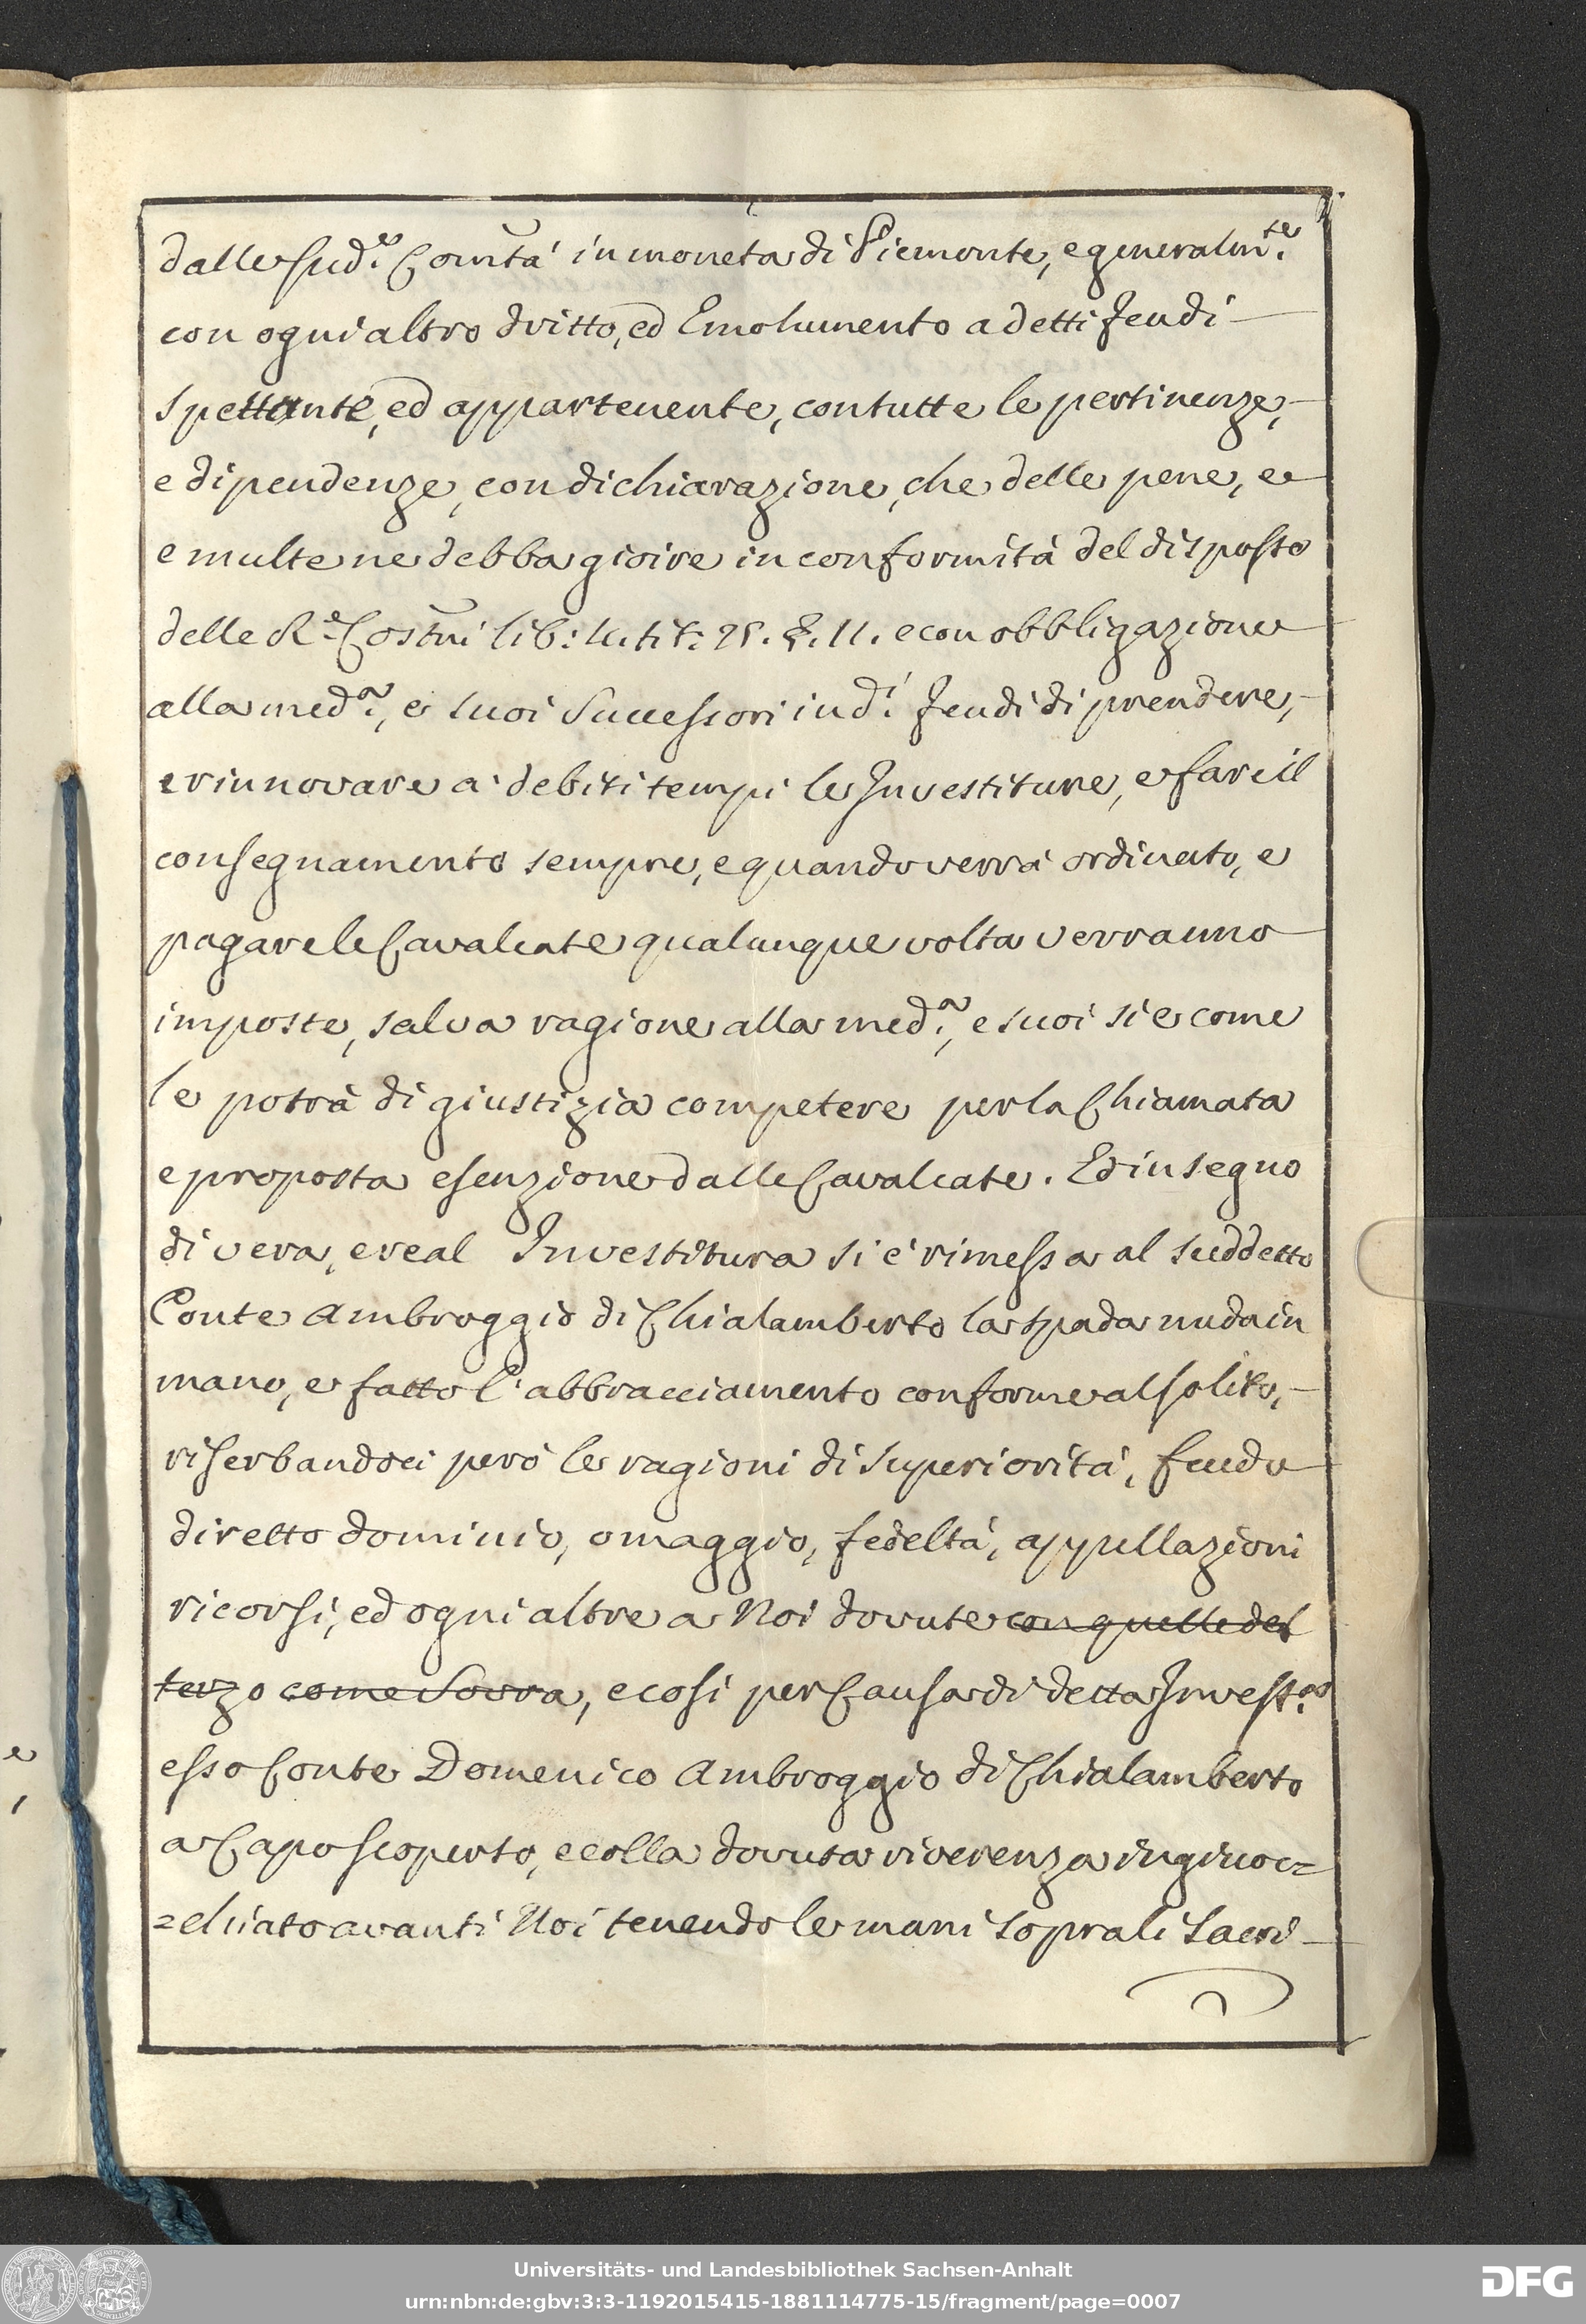 dalle sud.e Com̃tà in moneta di Piemonte, e generalm.te
con ogni altro dritto, ed Emolumento a detti feudi
spettante, ed appartenente, con tutte le pertinenze,
e dipendenze, con dichiarazione, che delle pene, e
e multe ne debba gioire in conformità del disposto
delle R.e Costñi lib: tit: §. 11. e con obbligazione
alla med.a, e suoi Successori in d.i feudi di prendere,
e rinnovare a' debiti tempi le Investiture, e fare il
consegnamento sempre, e quando verrà ordinato, e
pagare le Cavalcate qualunque volta verranno
imposte, salva ragione alla med.a, e suoi sì e come
le potrà di giustizia competere per la Chiamata
e proposta esenzione dalle Cavalcate. Ed in segno
di vera, e real Investitura si è rimessa al suddetto
Conte Ambroggio di Chialamberto la spada nuda in
mano, e fatto l'abbracciamento conforme al solito,
riserbandoci però le ragioni di superiorità, feudo
diretto dominio, omaggio, fedeltà, appellazioni
ricorsi, ed ogni altre a Noi dovute con quelle del
terzo come Sovra, e così per Causa di detta Invest.a
esso Conte Domenico Ambroggio di Chialamberto
a Capo scoperto, e colla dovuta riverenza inginoc=
=chiato avanti Noi tenendo le mani sopra li Sacri
Universitäts- und Landesbibliothek Sachsen-Anhalt
urn:nbn:de:gbv:3:3-1192015415-1881114775-15/fragment/page=0007
DFG